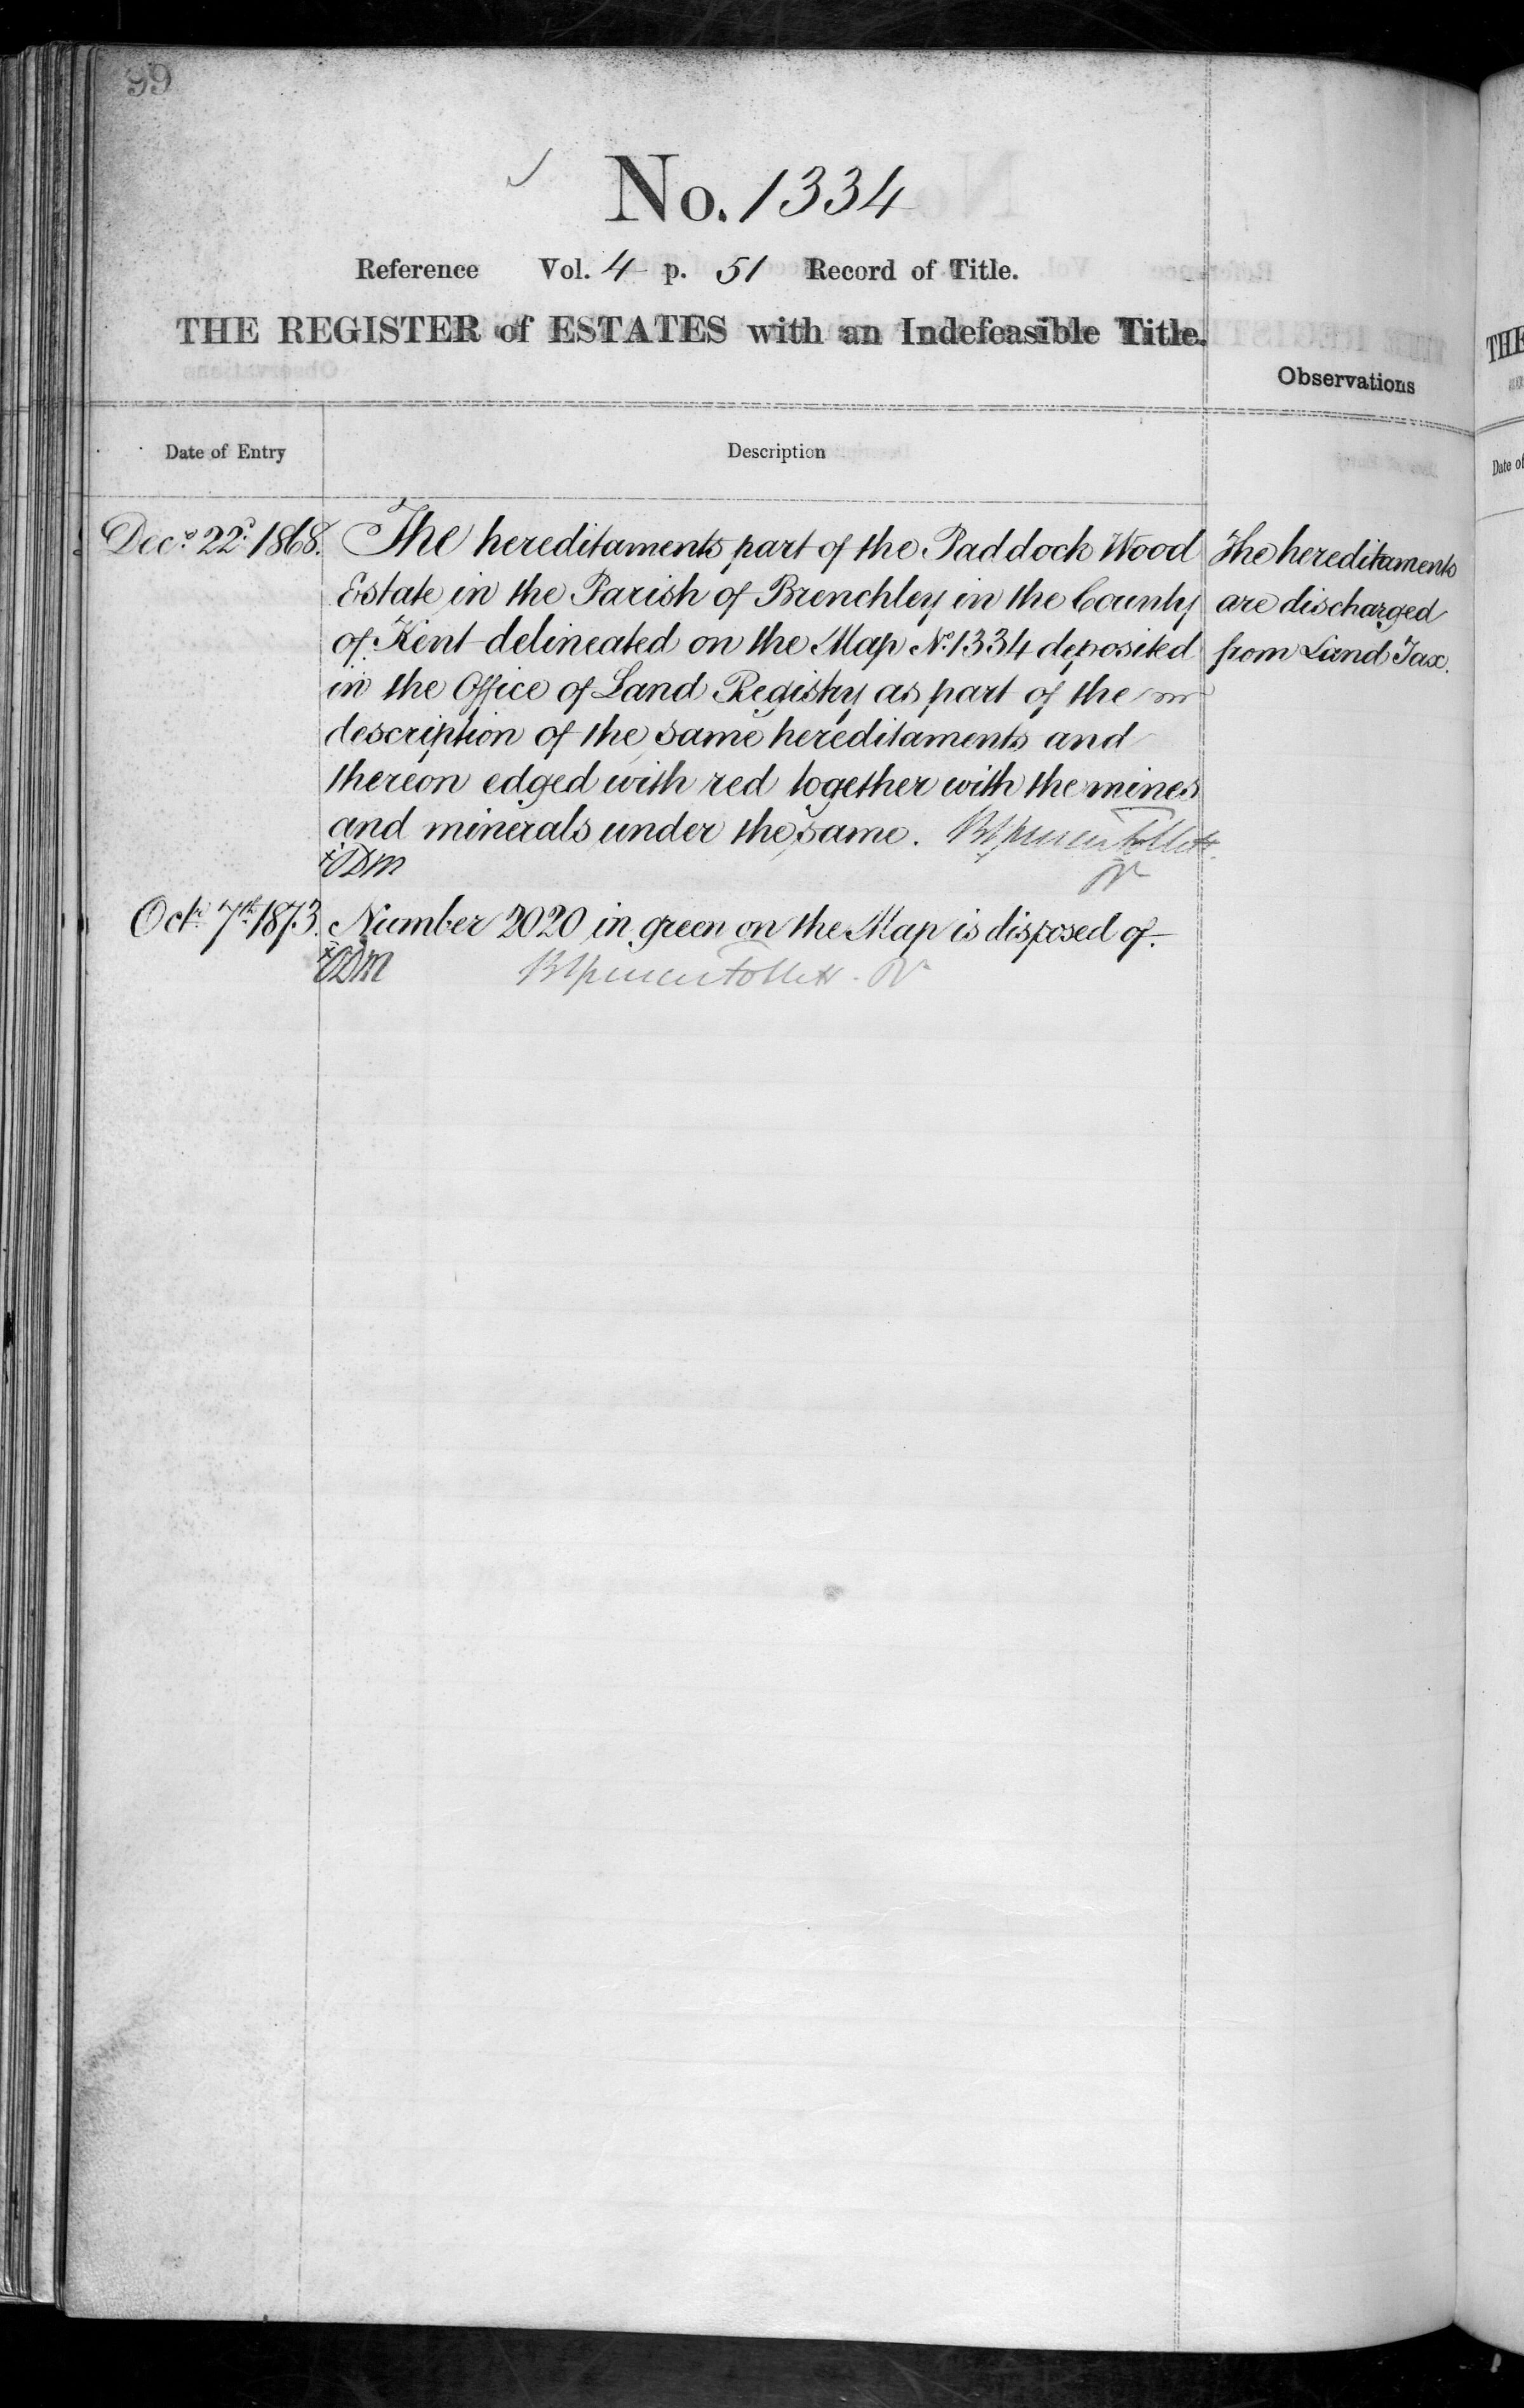 99
No. 1334
Reference Vol. 4 p. 51 Record of Title.
THE REGISTER of ESTATES with an Indefeasible Title.
Observations
Date of Entry
Description
Decr. 22d. 1868.
The hereditaments part of the Paddock Wood
Estate in the Parish of Brenchley in the County
of Kent delineated on the Map No. 1334 deposited
in the Office of Land Registry as part of the
description of the same hereditaments and
thereon edged with red together with the mines
and minerals under the same.
The hereditaments
are discharged
from Land Tax.
Octr. 7th. 1873.
Number 2020 in green on the Map is disposed of.
THE
Date of